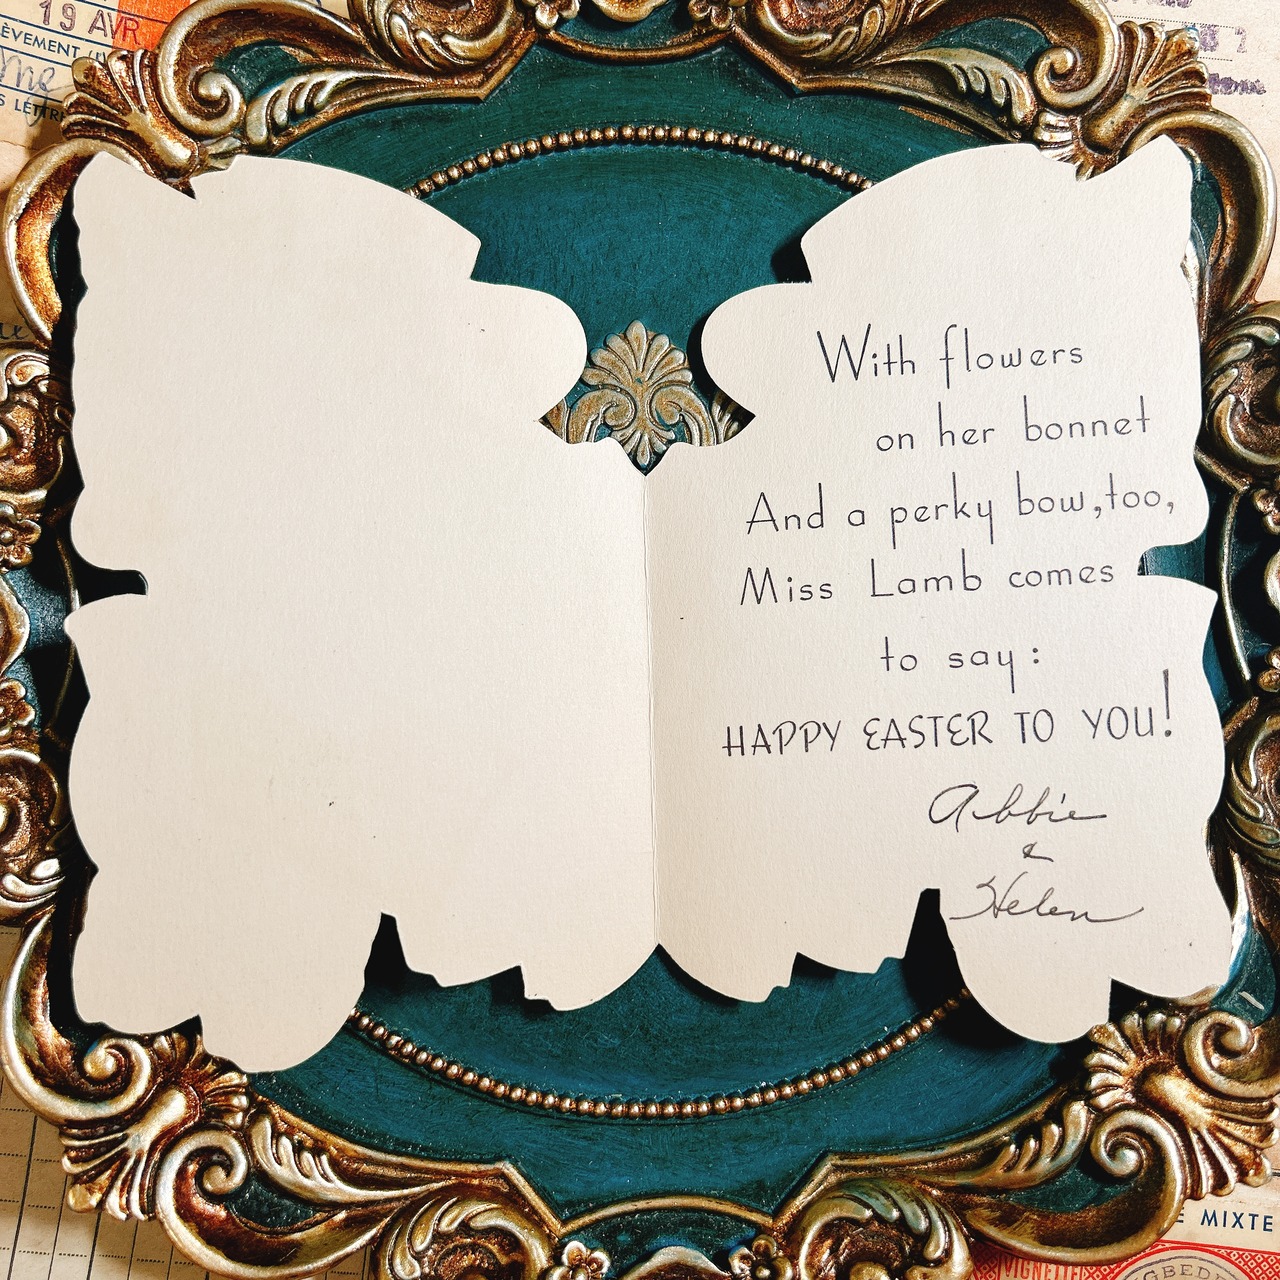 19 AVR
With flowers
on her bonnet
And a perky bow, too,
Miss Lamb comes
to say:
HAPPY EASTER TO YOU!
Abbie
&
Helen
MIXTE
VIGNETTE